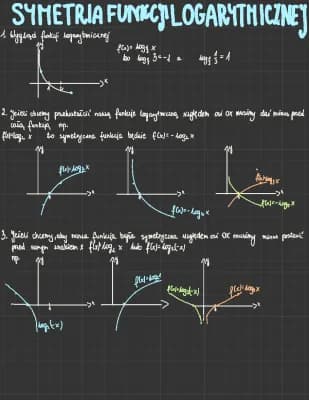 SYMETRIA FUNKCJI LOGARYTMICZNEJ
1. Wygląd funkcji logarytmicznej
f(x) = log
bo log 3 = -1 3 = 1
2. Jeżeli chcemy przekształcić naszą funkcję logarytmiczną względem osi OX musimy dać minus przed
całą funkcją np.
f(x) = log x to symetryczna funkcja będzie f(x) = -log x
f(x) = log x
f(x) = -log x
f(x) = log x
f(x) = -log x
3. Jeżeli chcemy, aby nasza funkcja była symetryczna względem osi OX musimy minus postawić
przed samym znakiem x f(x) log x lub f(x) = log (-x)
np.
log (-x)
f(x) = log
f(x) = log (-x)
f(x) = log x